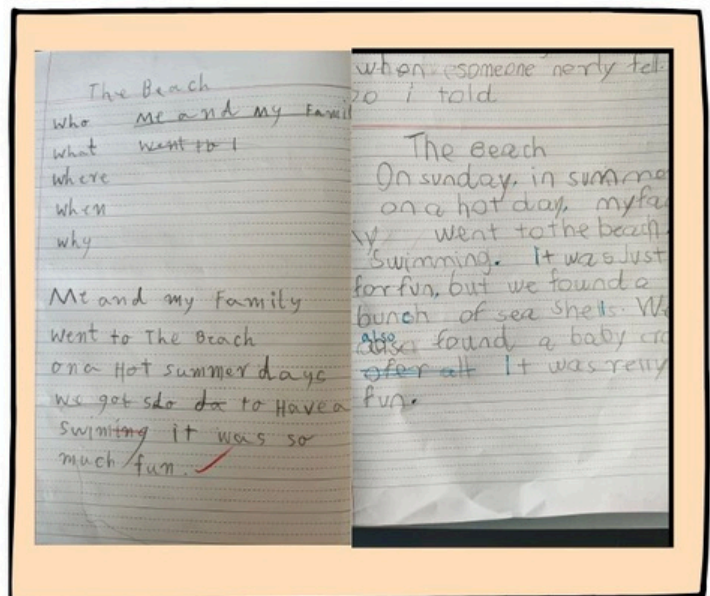 The Beach
who me and my Famil
what went to l
where
when
why
Me and my Family
went to The Beach
on a Hot summer days
we got sdo da to Have a
swimting it was so
much fun.
when esomeone nerly fell.
so i told
The Beach
On sunday, in summe
on a hot day, my fa
ly went to the beach
swimming. It was Just
for fun, but we found a
bunch of sea shells. We
also found a baby cra
ofer all It was relly
fun.